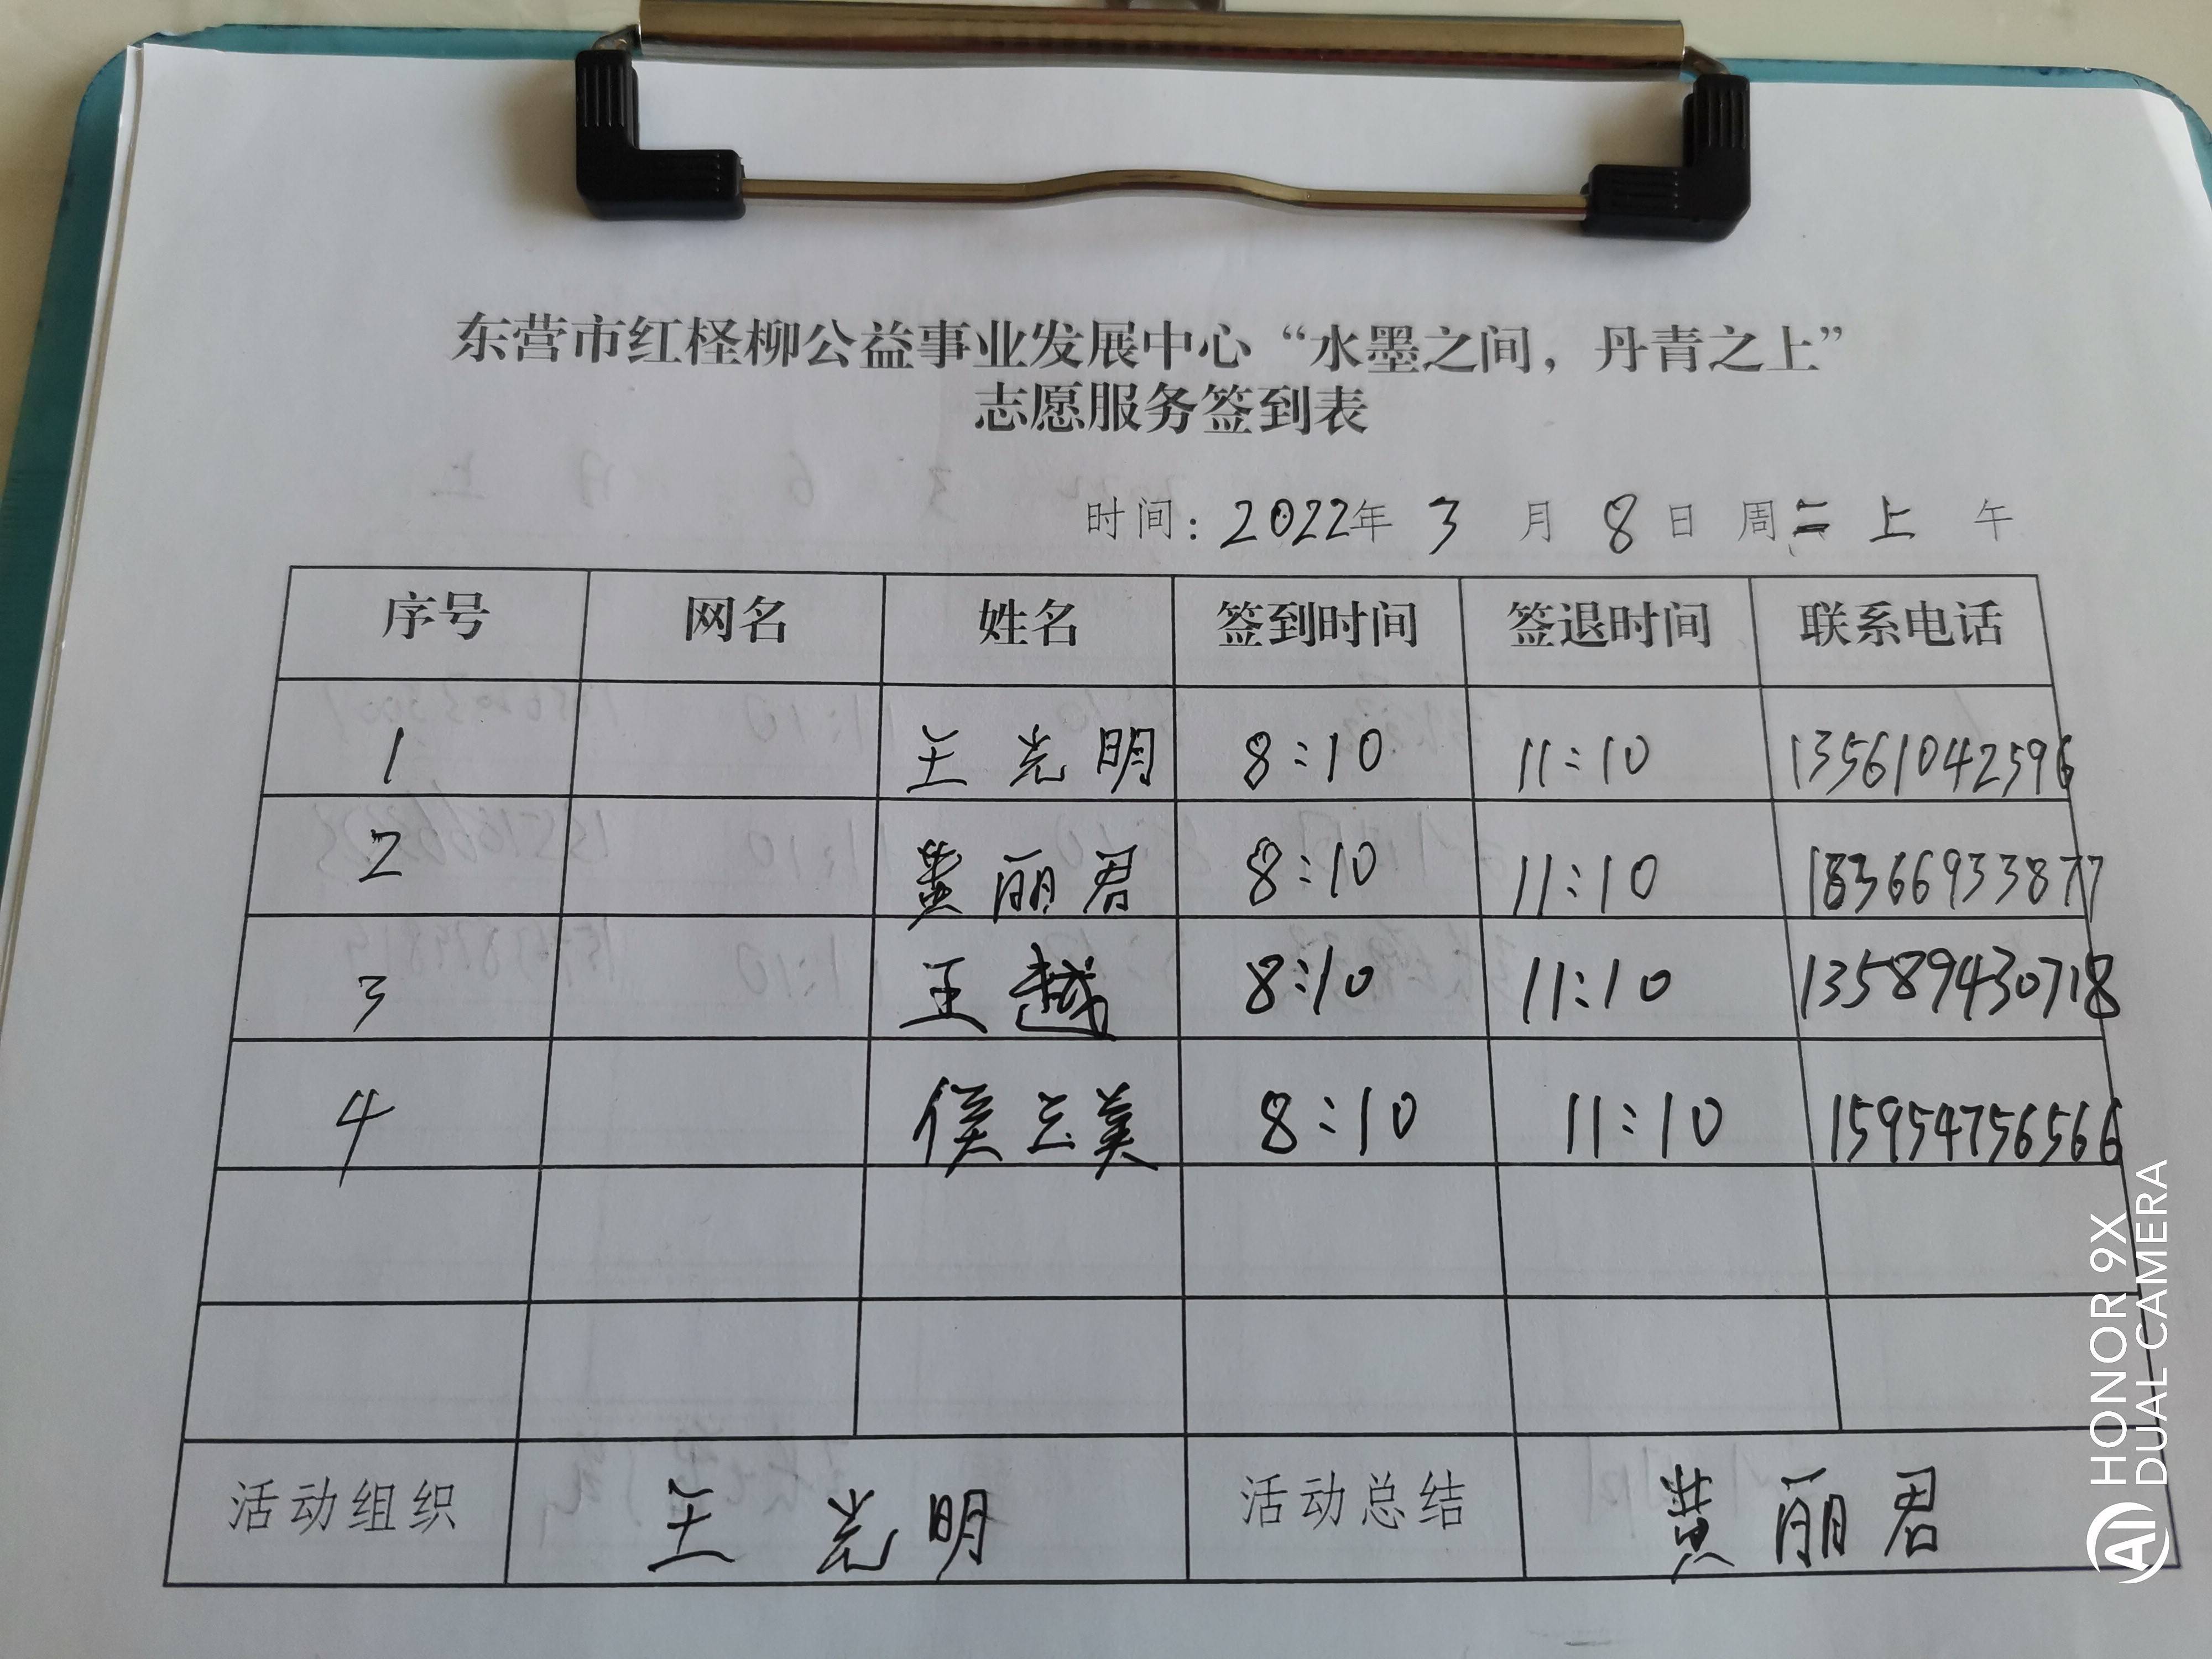 东营市红柽柳公益事业发展中心“水墨之间，丹青之上”
志愿服务签到表
时间：2022年 3 月 8 日 周二 上 午
序号 网名 姓名 签到时间 签退时间 联系电话
1 王光明 8:10 11:10 13561042596
2 黄丽君 8:10 11:10 18366933877
3 王越 8:10 11:10 13589430718
4 侯云美 8:10 11:10 15954756566
活动组织 王光明 活动总结 黄丽君
AI HONOR 9X
DUAL CAMERA